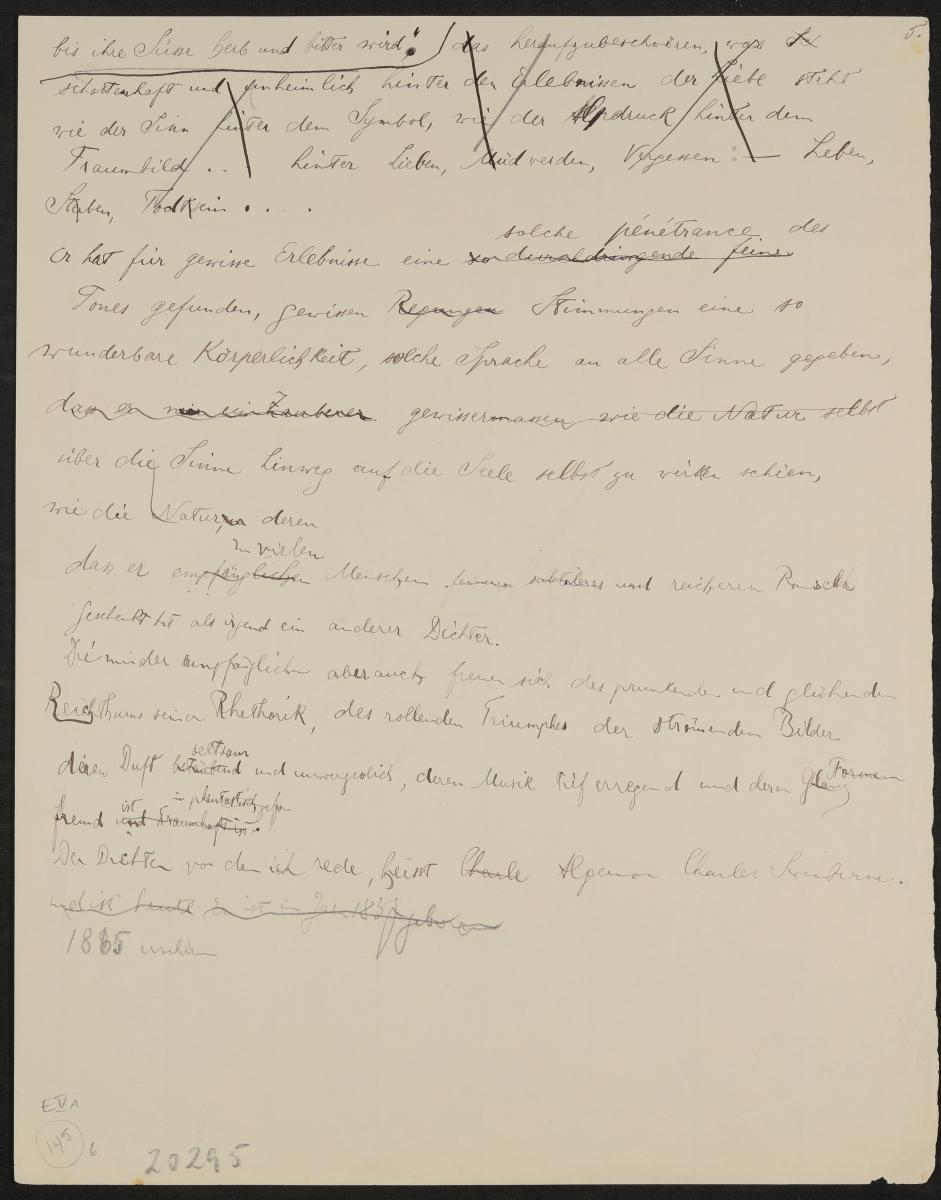 5.
bis ihre Süsse herb und bitter wird", das heraufzubeschwören, was
schattenhaft und unheimlich hinter den Erlebnissen der Liebe steht
wie der Sinn hinter dem Symbol, wie der Alpdruck hinter dem
Traumbild .. hinter Lieben, Müdwerden, Vergessen : — Leben,
Sterben, Todtsein . . . .
solche pénétrance des
Er hat für gewisse Erlebnisse eine so durchdringende feine
Tones gefunden, gewissen Regungen Stimmungen eine so
wunderbare Körperlichkeit, solche Sprache an alle Sinne gegeben,
dass er wie ein Zauberer gewissermassen wie die Natur selbst
über die Sinne hinweg auf die Seele selbst zu wirken schien,
wie die Natur, deren
zu vielen
dass er empfänglichen Menschen feineren subtileres und reicheren Rausch
geschenkt hat als irgend ein anderer Dichter.
Die minder empfänglichen aber auch freuen sich des prunkenden und glühenden
Reichthums seiner Rhethorik, des rollenden Triumphes der strömenden Bilder
seltsam Formen
deren Duft betäubend und unvergesslich, deren Musik tief erregend und deren Glanz
ist in phantastisch
fremd und traumhaft ist.
Der Dichter von dem ich rede, heisst Charle Algernon Charles Swinburne.
und ist heute Er ist im Jar 1837 geboren
1865 erschien
EVA
145 6
20295